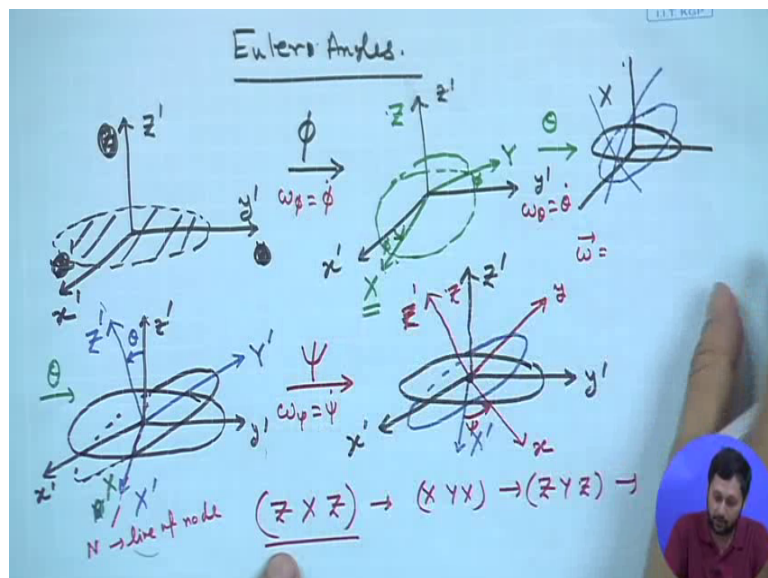 Eulers Angles.
IIT KGP
z'
y'
x'
ϕ
ω_ϕ = ϕ̇
Z z'
Y
y'
x'
X
θ
ω_θ = θ̇
X
ω⃗ =
θ
Z' θ z'
Y'
y'
x'
X X'
N → line of node
ψ
ω_ψ = ψ̇
Z' z z'
y
y'
x'
ψ X' x
(Z X Z) → (X Y X) → (Z Y Z) →